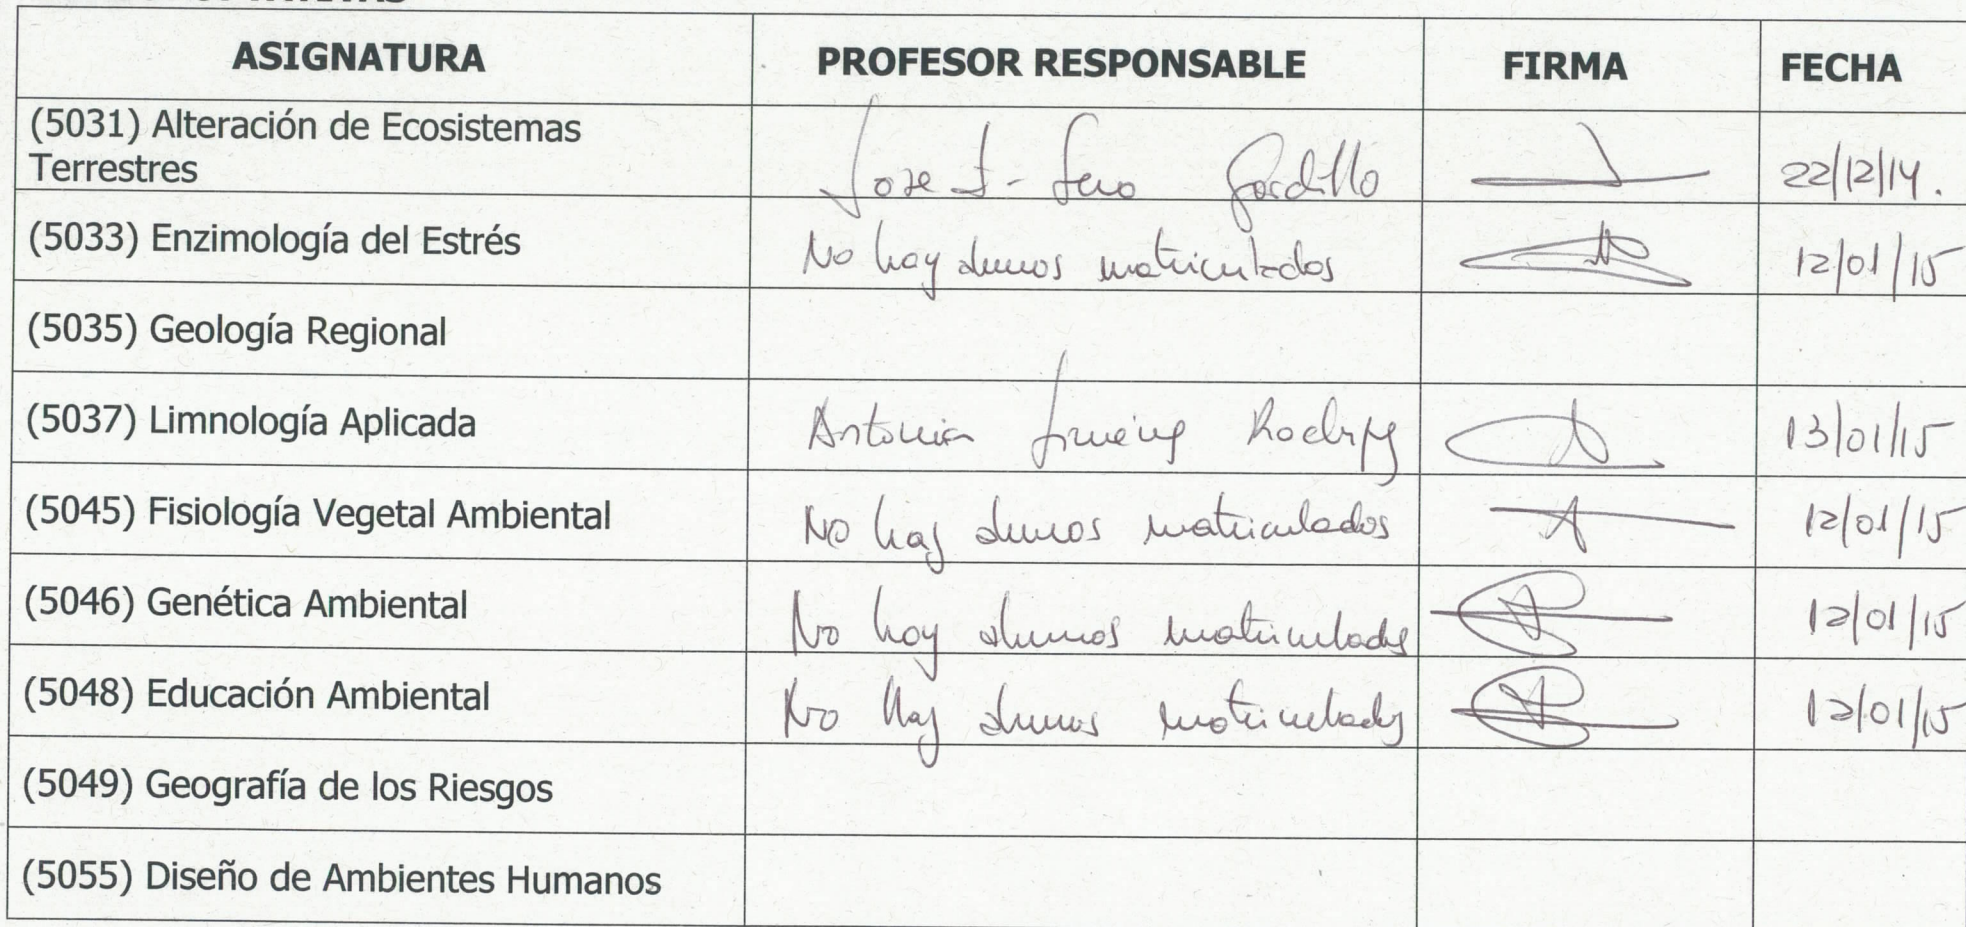 ASIGNATURA PROFESOR RESPONSABLE FIRMA FECHA
(5031) Alteración de Ecosistemas
Terrestres
Jose Gordillo 22/12/14.
(5033) Enzimología del Estrés No hay alumnos matriculados 12/01/15
(5035) Geología Regional
(5037) Limnología Aplicada Antonia 13/01/15
(5045) Fisiología Vegetal Ambiental No hay alumnos matriculados 12/01/15
(5046) Genética Ambiental No hay alumnos matriculados 12/01/15
(5048) Educación Ambiental No hay alumnos matriculados 12/01/15
(5049) Geografía de los Riesgos
(5055) Diseño de Ambientes Humanos